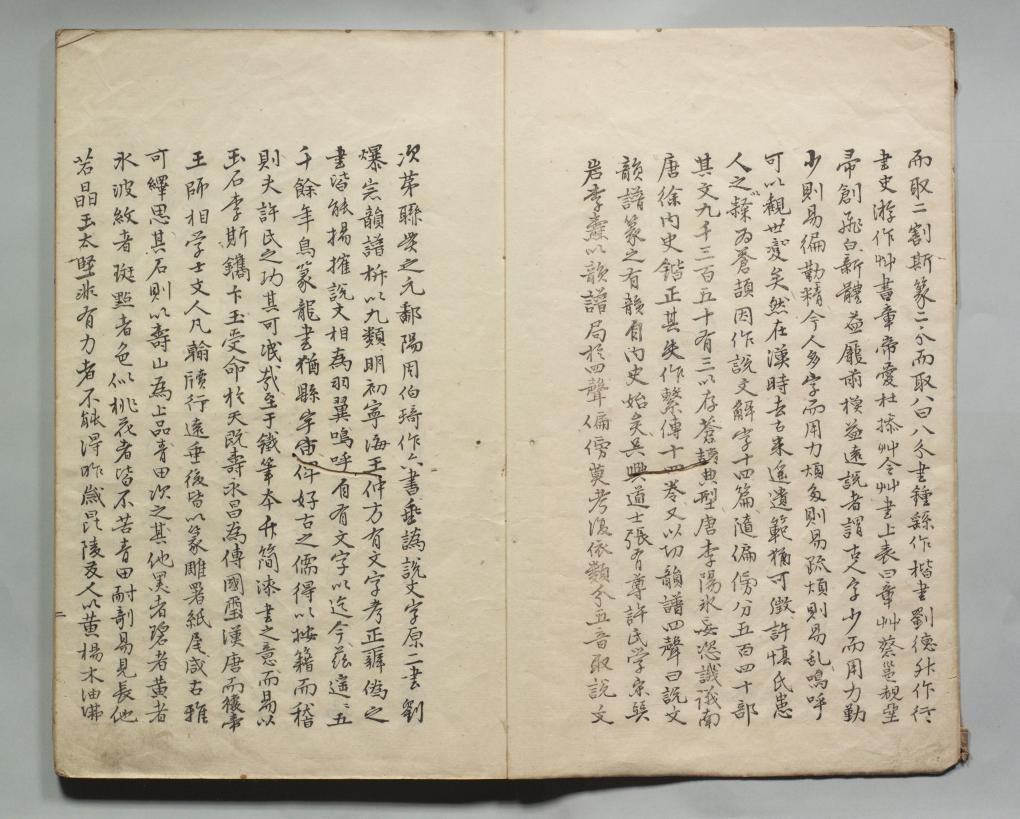 而取二割斯篆二分而取八曰八分書鍾繇作楷書劉德升作行
書史游作艸書章帝愛杜操艸令艸書上表曰章艸蔡邕觀堊
帚創飛白新體益龐雨模益遠說者謂古人字少而用力勤
少則易徧勤精今人多字而用力煩多則易疏煩則易乱嗚呼
可以觀世變矣然在漢時去古未遙遺範猶可徵許慎氏患
人之隸為蒼頡因作說文解字十四篇隨偏傍分五百四十部
其文九千三百五十有三以存蒼頡典型唐李陽氷妄恣譏議南
唐徐内史鍇正其失作繫傳十四卷又以切韻譜四聲曰說文
韻譜篆之有韻自内史始矣吳興道士張有尊許氏学宋巽
岩李燾以韻譜局於四聲偏傍莫考復依類分五音取說文
次苐聯畳之元鄱陽周伯琦作六書垂譌說文字原二書劉
爆宗韻譜枡以九類明初寧海王仲方有文字考正釋偽之
書皆能揚搉說文相為羽翼嗚呼自有文字以迄今茲遙五
千餘年鳥篆龍書猶縣宇宙件好古之儒得以按籍而稽
則夫許氏之功其可泯哉至于鐵筆本竹简漆書之意而易以
玉石李斯鐫卞玉受命於天既壽永昌為傳國璽漢唐而後帝
王師相学士文人凡翰牘行遠垂後皆以篆雕署紙尾咸古雅
可繹思其石則以壽山為上品青田次之其他黑者碧者黄者
氷波紋者斑點者色似桃花者皆不苦青田耐剞易見長他
若晶玉太堅非有力者不能得昨歲昆陵友人以黄楊木油沸